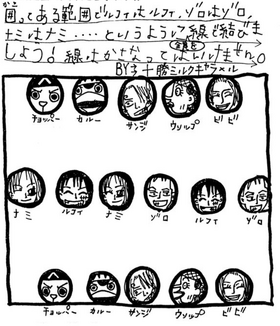 かこ
囲ってある範囲でルフィはルフィ,ゾロはゾロ,
ナミはナミ‥‥というように線で結びま
全員を
しょう!線はかさなってはいけません。
BY 十勝ミルクキャラメル
チョッパー カルー サンジ ウソップ ビビ
ナミ ルフィ ナミ ゾロ ルフィ ゾロ
チョッパー カルー サンジ ウソップ ビビ